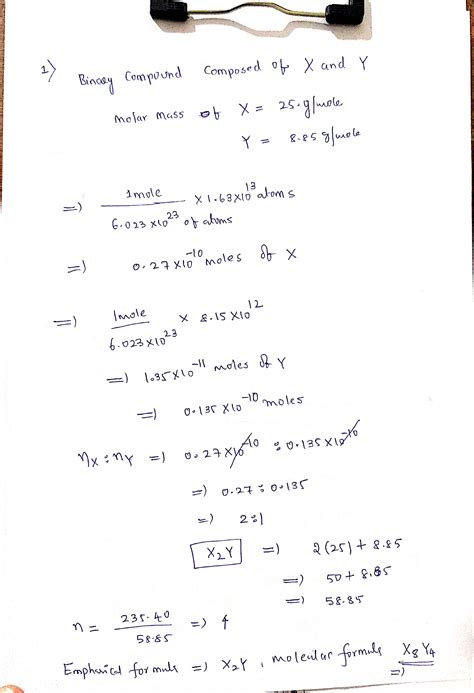 1) Binary Compound Composed of X and Y
molar mass of X = 25.g/mole
Y = 8.85 g/mole
=) 1mole / 6.023 X10²³ of atoms X 1.63X10¹³ atoms
=) 0.27X10⁻¹⁰ moles of X
=) 1mole / 6.023X10²³ X 8.15 X10¹²
=) 1.35X10⁻¹¹ moles of Y
=) 0.135 X10⁻¹⁰ moles
nX : nY =) 0.27X10⁻¹⁰ : 0.135X10⁻¹⁰
=) 0.27 : 0.135
=) 2:1
X₂Y =) 2(25) + 8.85
=) 50 + 8.85
=) 58.85
n = 235.40 / 58.85 =) 4
Emphirical formula =) X₂Y , molecular formula X₈Y₄
=)